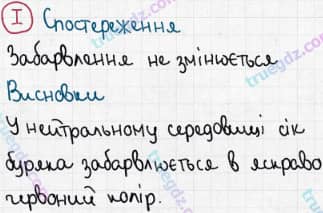 I Спостереження
Забарвлення не змінюється
Висновки
У нейтральному середовищі сік
буряка забарвлюється в яскраво
червоний колір.
truegdz.com
truegdz.com